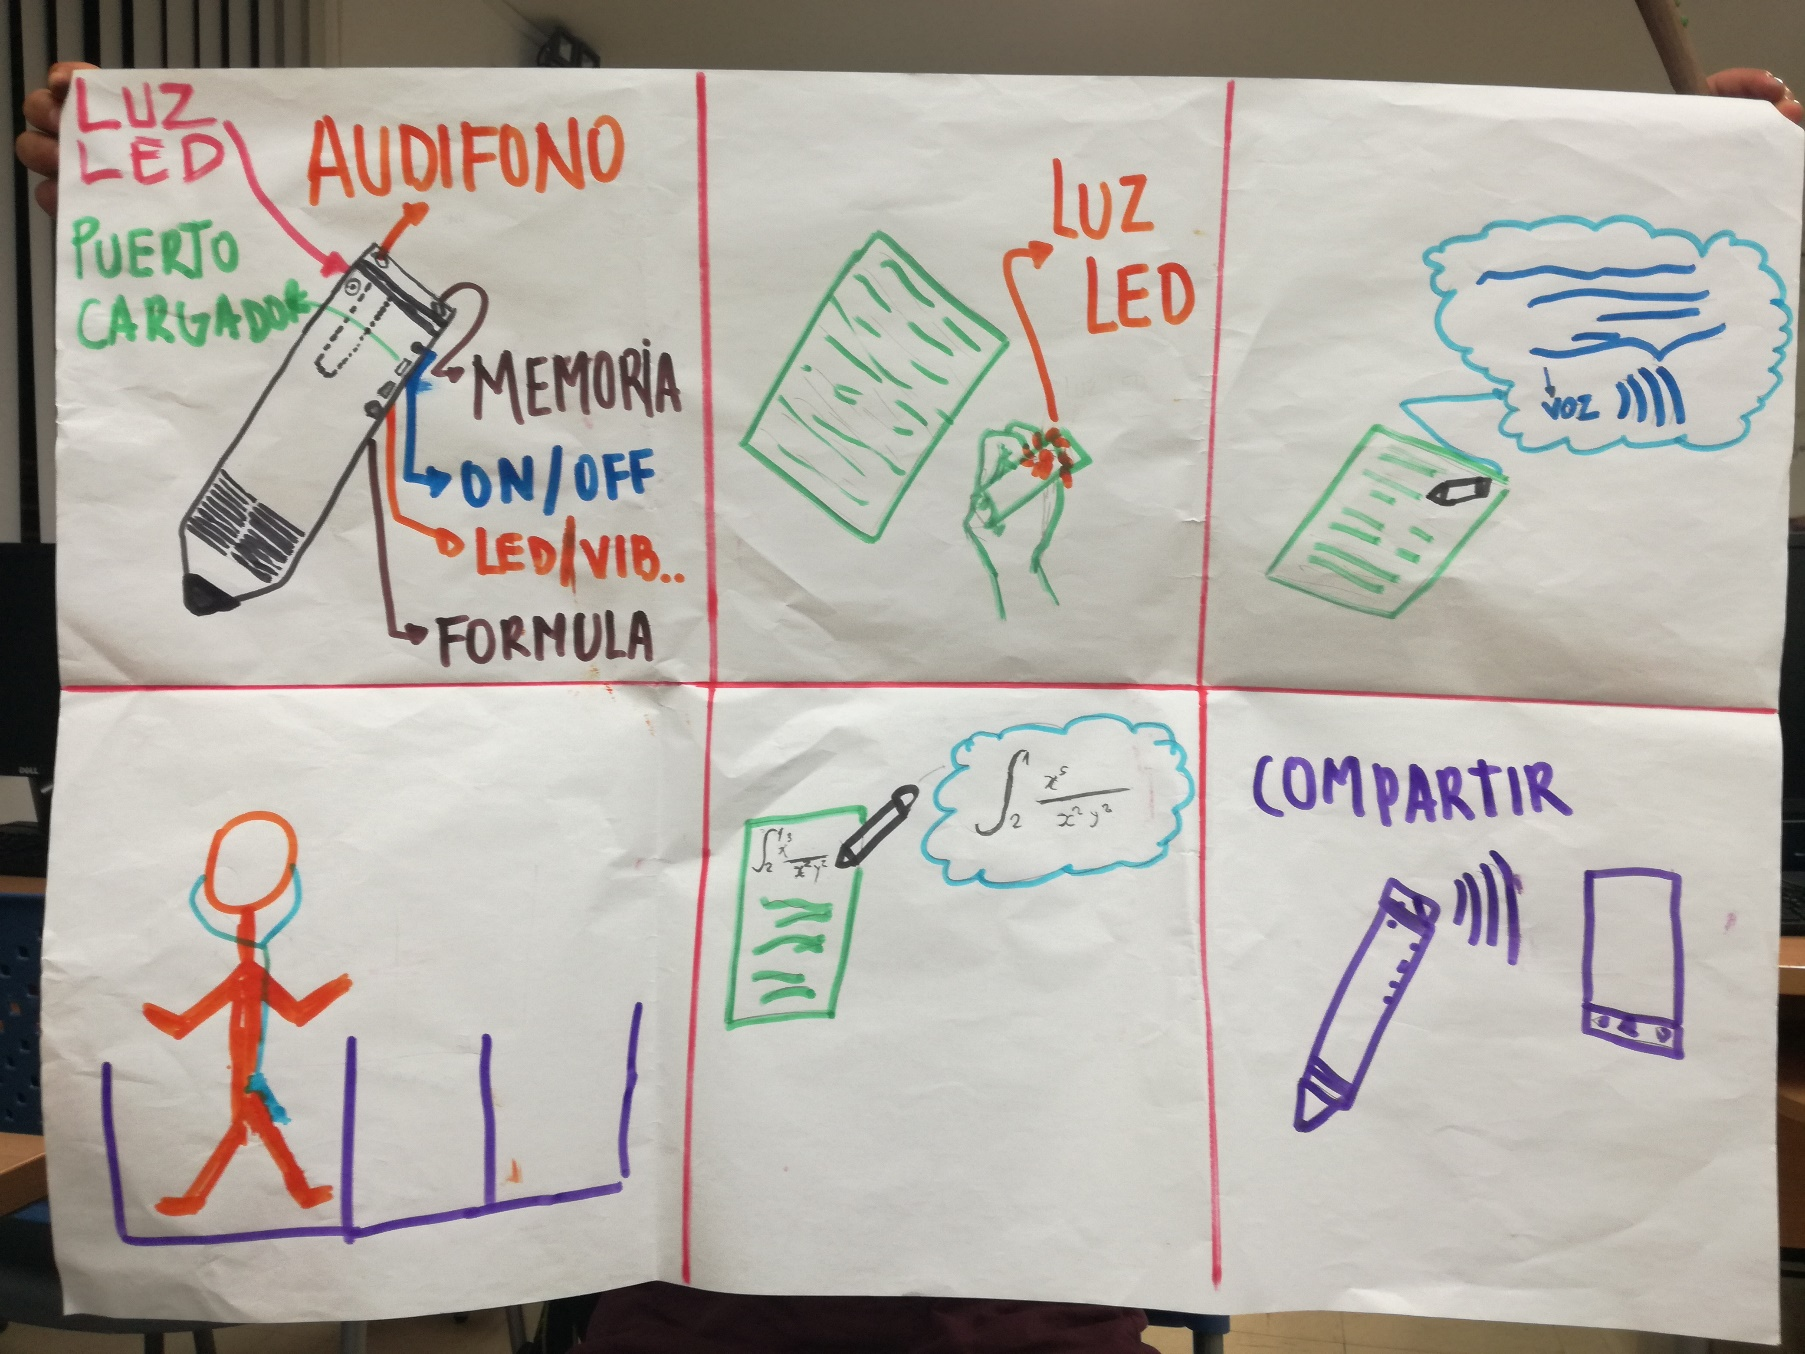 LUZ
LED
AUDIFONO
PUERTO
CARGADOR
MEMORIA
ON/OFF
LED/VIB..
FORMULA
LUZ
LED
VOZ
∫₂¹ x³/x²y²
∫₂¹ x⁵/x²y²
COMPARTIR
DELL